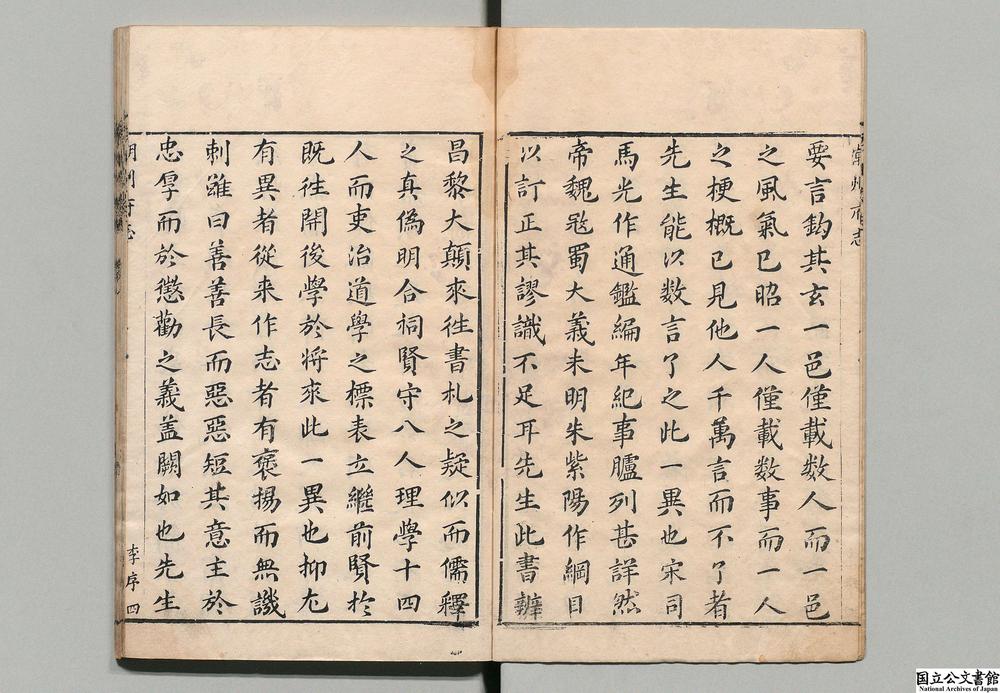 要言鈎其玄一邑僅載數人而一邑
之風氣已昭一人僅載数事而一人
之梗概已見他人千萬言而不了者
先生能以数言了之此一異也宋司
馬光作通鑑編年紀事臚列甚詳然
帝魏𡨥蜀大義未明朱紫陽作綱目
以訂正其謬識不足耳先生此書辨
昌黎大顛來徃書札之疑似而儒釋
之真偽明合祠賢守八人理學十四
人而吏治道學之標表立繼前賢於
既徃開後學於将來此一異也抑尤
有異者從来作志者有褒揚而無譏
刺雖曰善善長而惡惡短其意主於
忠厚而於懲勸之義盖闕如也先生
李序 四
国立公文書館
National Archives of Japan